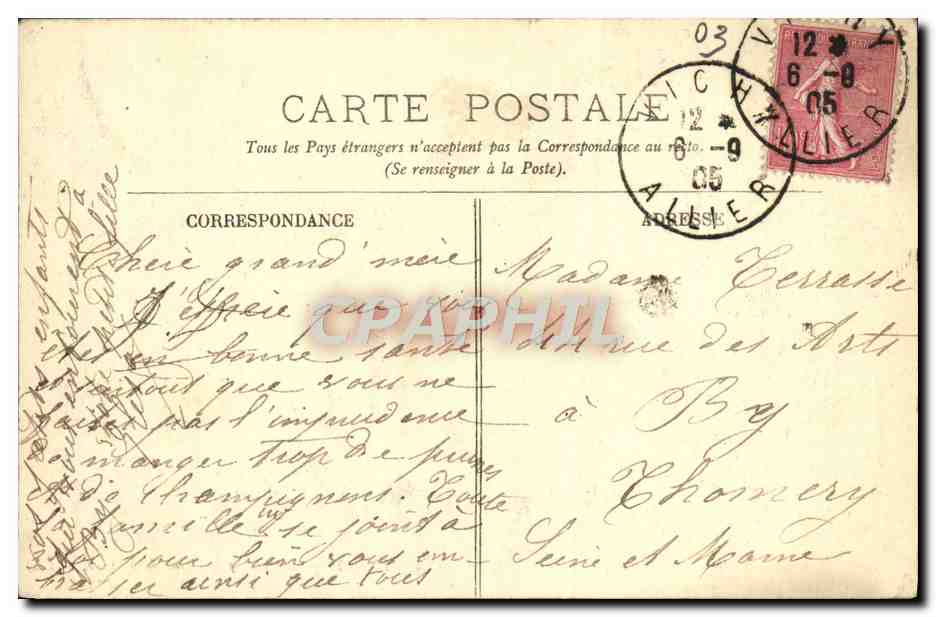 03
VICHY
ALLIER
12 *
6 -9
05
VICHY
ALLIER
12 *
6 -9
05
CARTE POSTALE
Tous les Pays étrangers n'acceptent pas la Correspondance au recto.
(Se renseigner à la Poste).
CORRESPONDANCE
Chère grand'mère
J'espère que vous
êtes en bonne santé
et surtout que vous ne
faites pas l'imprudence
de manger trop de prunes
et de champignons. Toute
la famille se joint à
moi pour bien vous em
brasser ainsi que tous
vos petits enfants
qui vous entourent
petite fille
ADRESSE
Madame Terrasse
rue des Arts
à By
Thomery
Seine et Marne
CPAPHIL